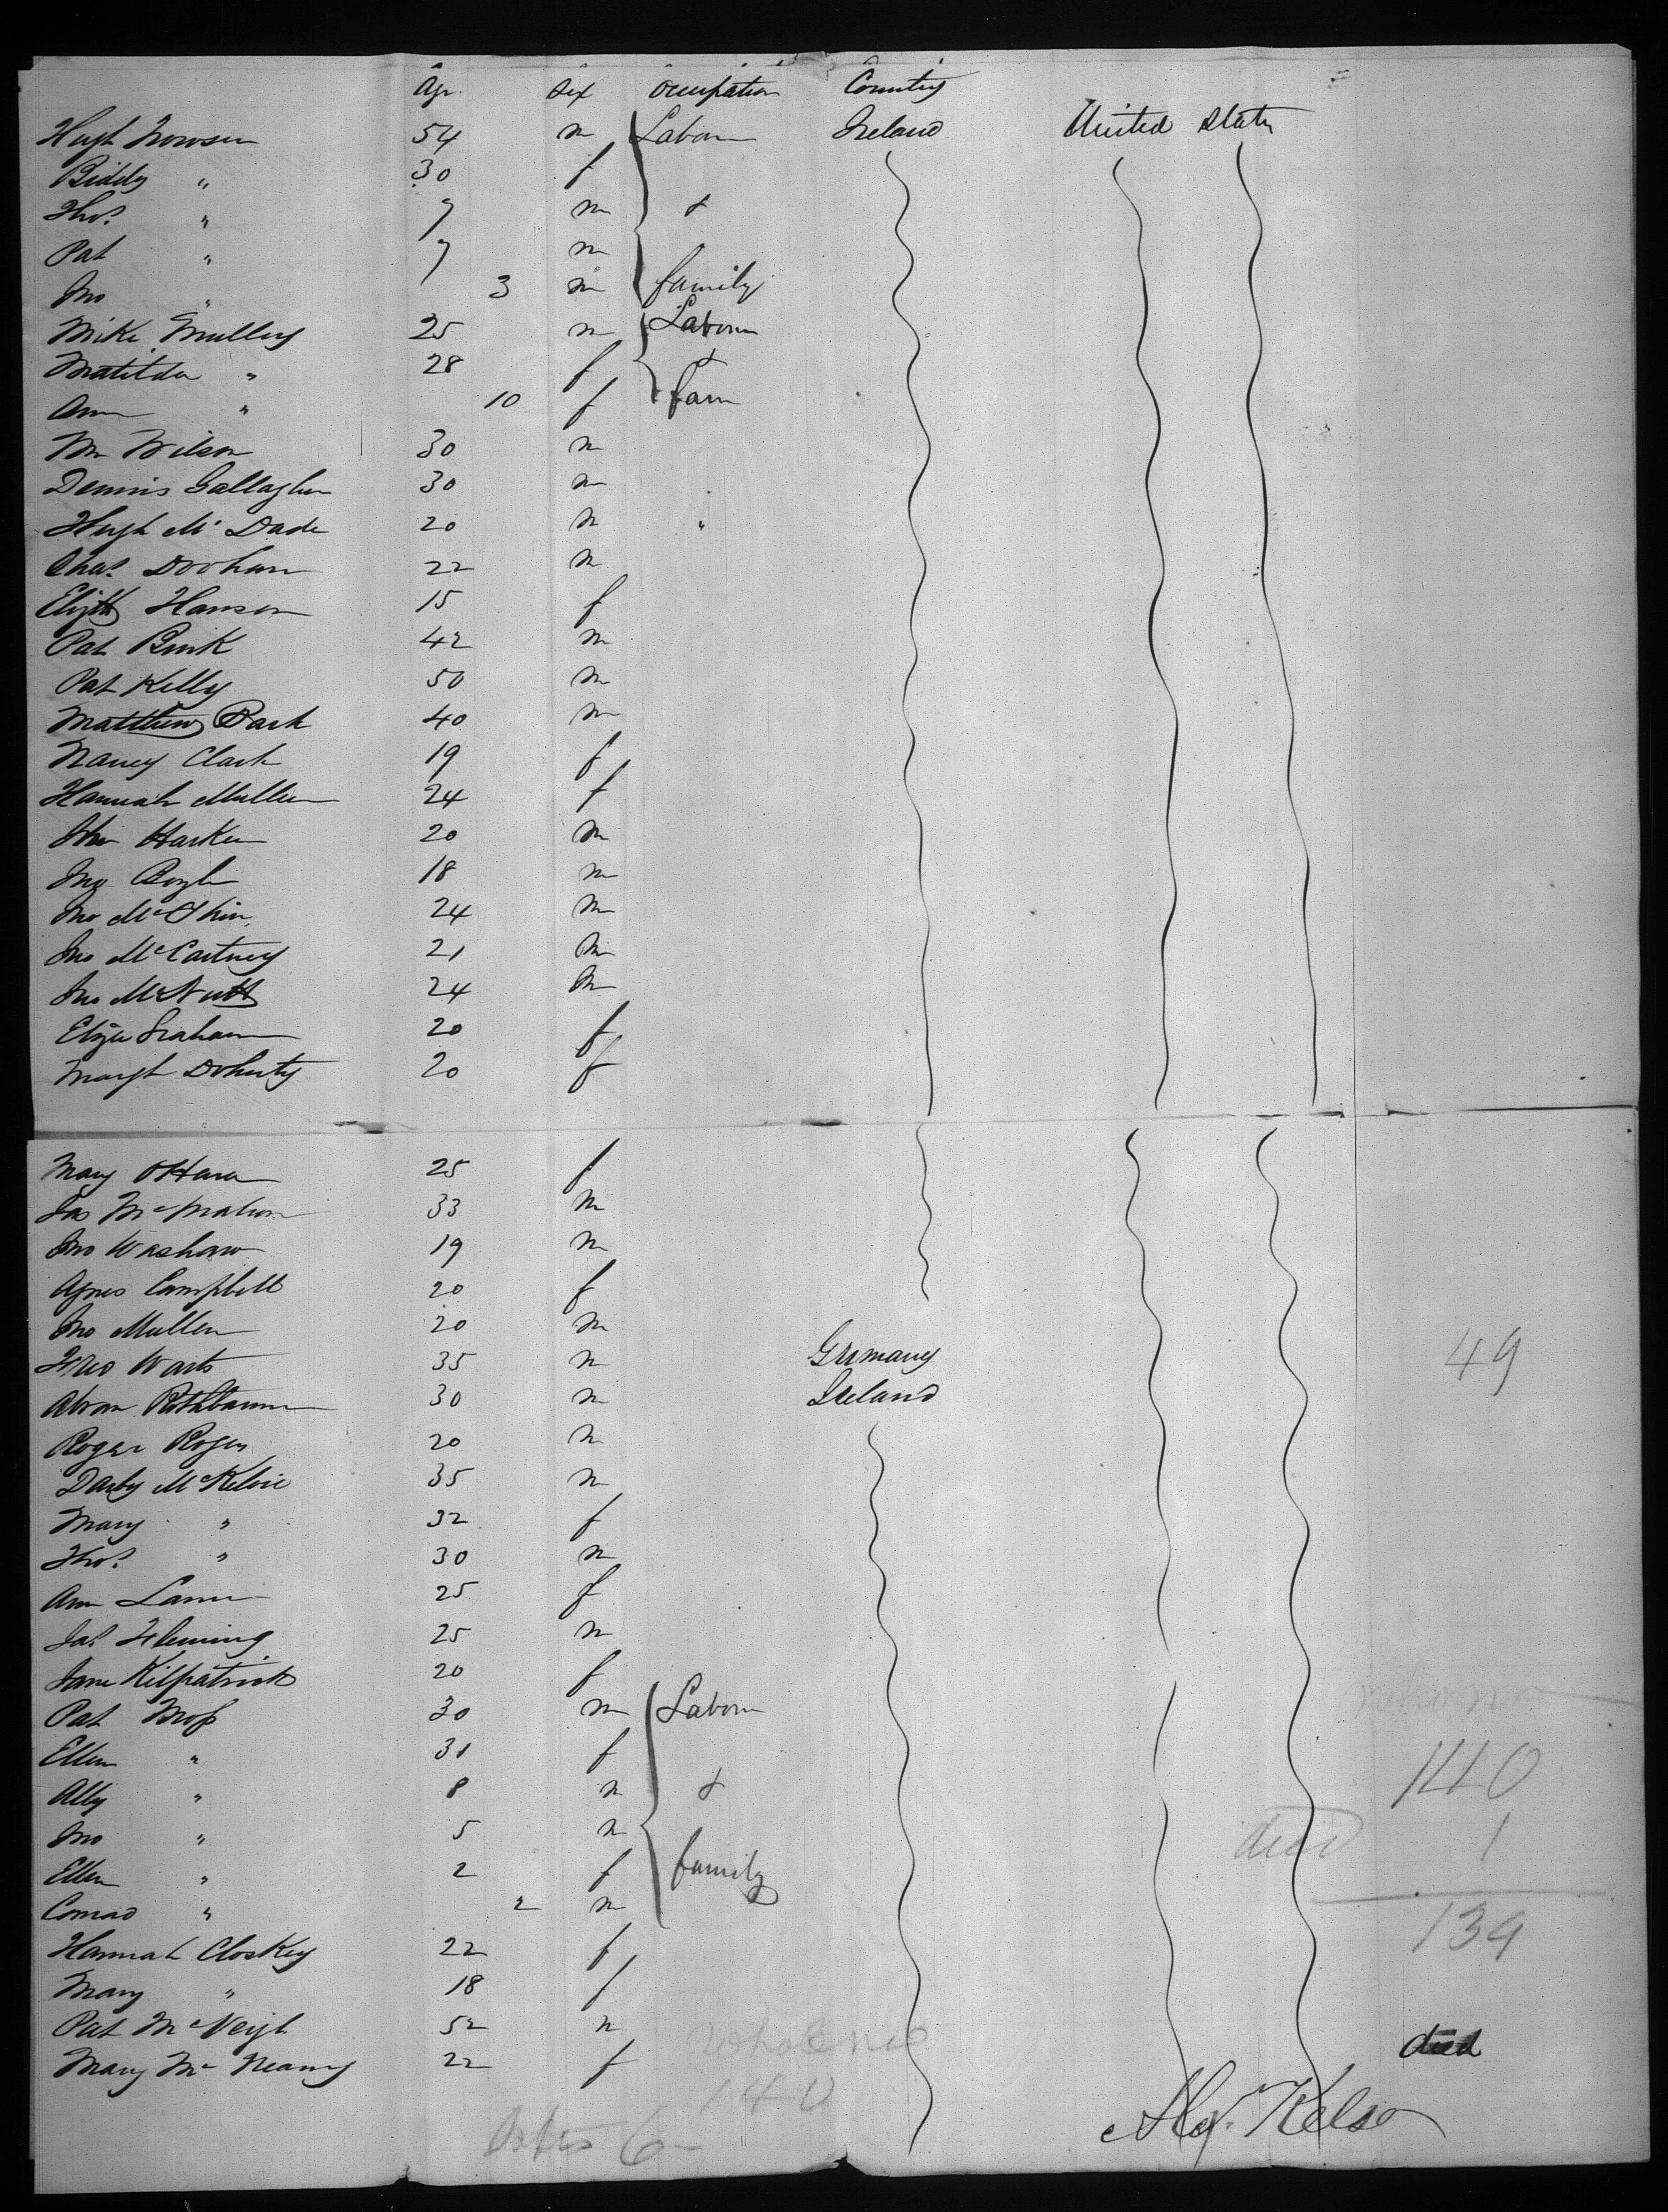 Age Sex Occupation Country
Hugh 54 m Labour Ireland United States
Biddy " 30 f
Thos. " 9 m &
Pat " 7 m
Jno " 3 m family
Mike 25 m Labour
Matilda " 28 f &
Ann " 10 f fam
Wm Wilson 30 m
Dennis Gallagher 30 m
Hugh Mc Dade 20 m "
Chas. Doohan 22 m
Elizth Hanson 15 f
Pat 42 m
Pat Kelly 50 m
Matthew Park 40 m
Nancy Clark 19 f
Hannah Mullen 24 f
John Harken 20 m
Boyle 18 m
Jno 24 m
Jno McCartney 21 m
Jno McNutt 24 m
Eliza Graham 20 f
Margt Doherty 20 f
Mary OHara 25 f
Jas McMahon 33 m
Jno Washaw 19 m
Agnes Campbell 20 f
Jno Mullen 20 m
35 m Germany 49
Abram Rathbaum 30 m Ireland
Roger 20 m
Darby McKelvie 35 m
Mary " 32 f
Thos. " 30 m
Ann 25 f
Jas. Fleming 25 m
Jane Kilpatrick 20 f
Pat 30 m Labour
Ellen " 31 f 140
Ally " 8 m &
Jno " 5 m died 1
Ellen " 2 f family
Conrad " 2 m 139
Hannah Closkey 22 f
Mary " 18 f
Pat McVeigh 52 m whole no died
Mary Mc Neamy 22 f
140 Alex. Kelso
6